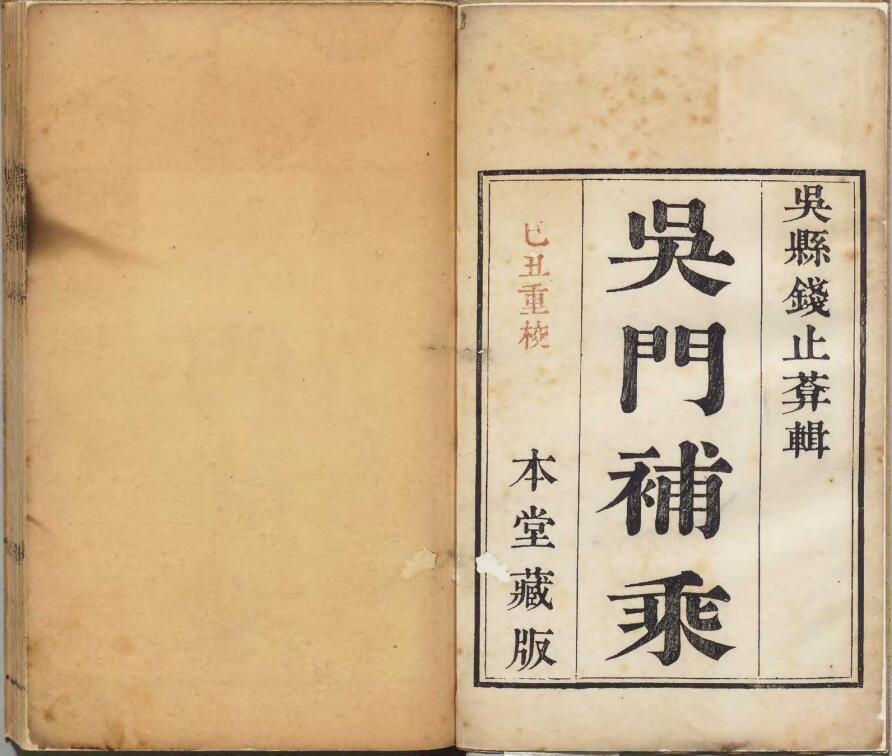 吳縣錢止葊輯
吳門補乘
己丑重校
本堂藏版